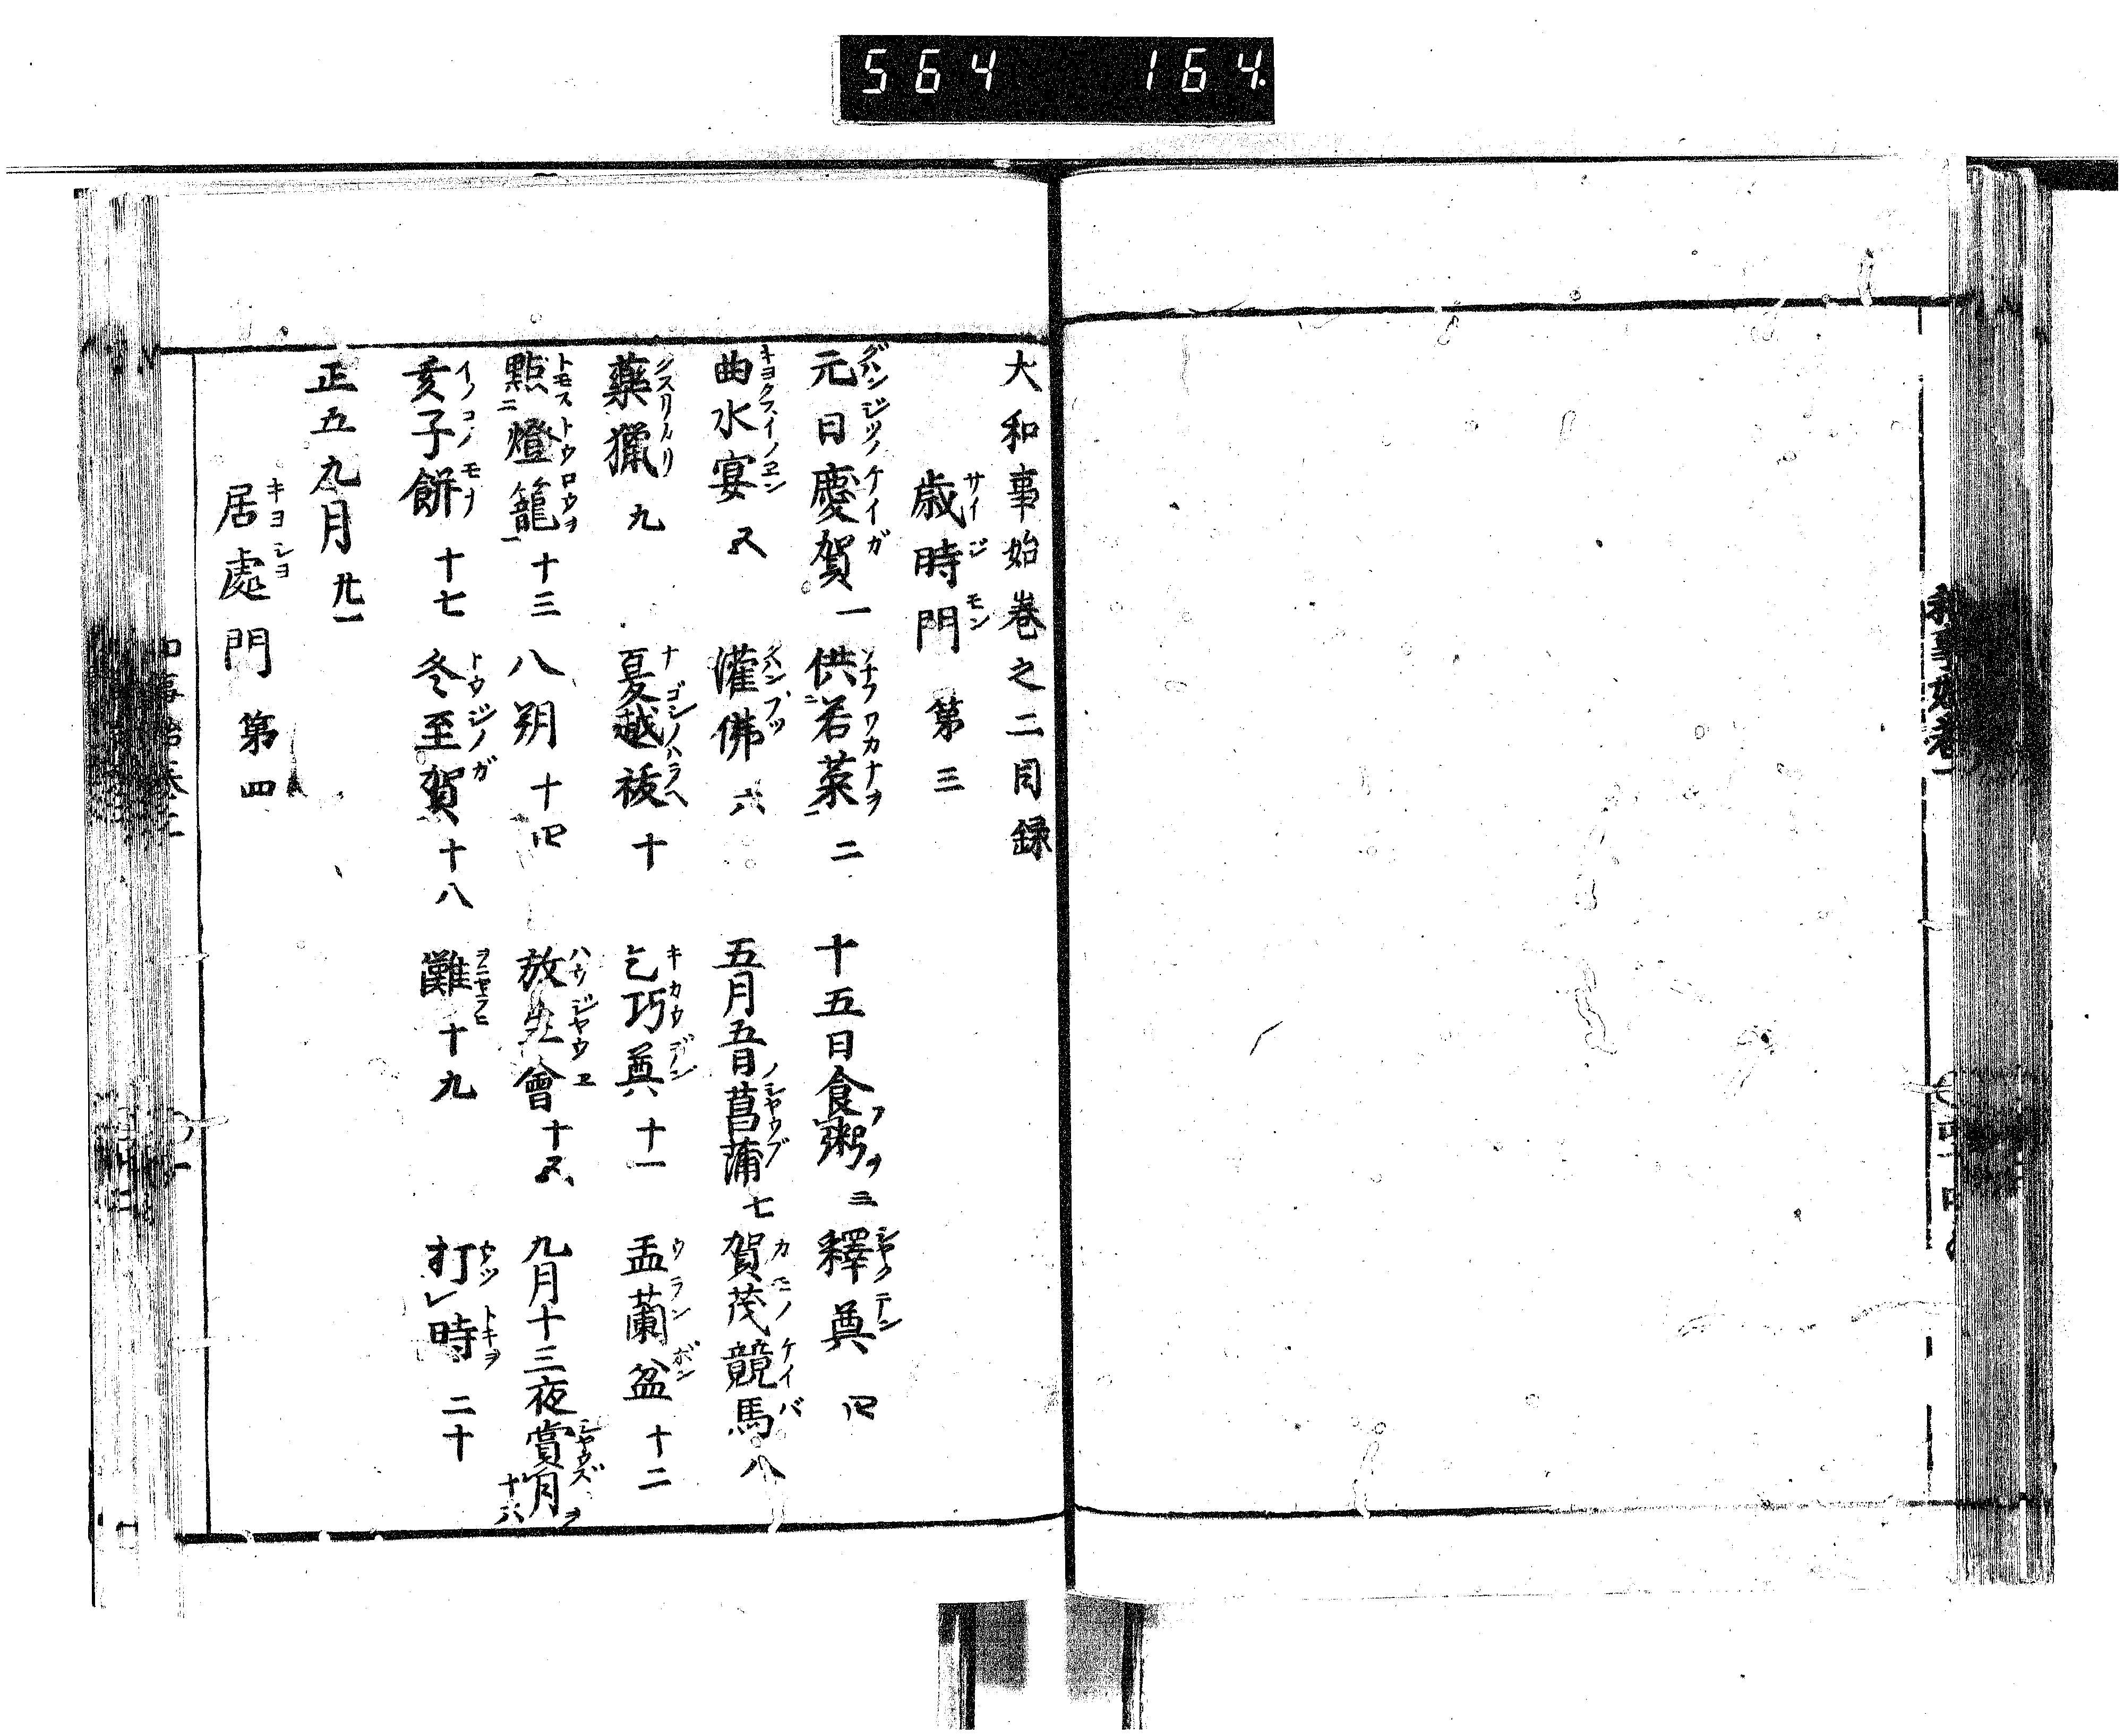 564 164.
大和事始巻之二目録
歳時門 第三
元日慶賀 一 供若菜 二 十五日食粥 三 釋奠 四
曲水宴 五 灌佛 六 五月五日菖蒲 七 賀茂競馬 八
藥獵 九 夏越祓 十 乞巧奠 十一 盂蘭盆 十二
點燈籠 十三 八朔 十四 放生會 十五 九月十三夜賞月 十六
亥子餅 十七 冬至賀 十八 儺 十九 打時 二十
正五九月 廿一
居處門 第四